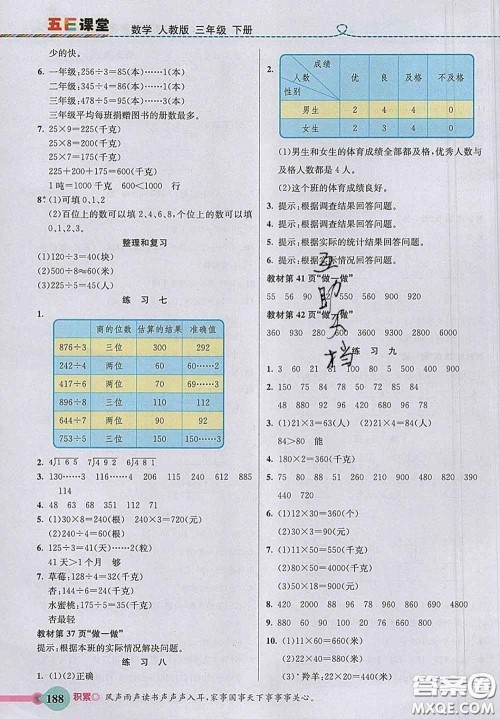 五E课堂
数学 人教版 三年级 下册
少的快。
6. 一年级:256÷3=85(本)……1(本)
二年级:345÷4=86(本)……1(本)
三年级:478÷5=95(本)……3(本)
三年级平均每班捐赠图书的册数最多。
7. 25×9=225(千克)
25×8=200(千克)
25×7=175(千克)
225+200+175=600(千克)
1吨=1000千克 600千克<1000千克
8*(1)可填0,1,2
(2)百位上的数可以填2,4,6,8,个位上的数可以填0,1,2
整理和复习
(1)120÷3=40(块)
(2)500÷8≈60(根)
(3)225÷5=45(千克)
练习七
1.
商的位数 估算的结果 准确值
876÷3 三位 300 292
242÷4 两位 60 60……2
417÷6 两位 70 69……3
696÷6 三位 110 116
644÷7 两位 90 92
753÷5 三位 150 150……3
2. 4)165 7)492
3. 130……4 116……4 206 115 241……3 64
4. 48 80 90 60
5. (1)30×8=240(根) (2)240×3=720(根)
6. 124÷3=41(天)……1(下)
41天>1个月 够
7. 草莓:128÷4=32(千克)
杏:144÷6=24(千克)
水蜜桃:175÷5=35(千克)
32<35 24<35
教材第37页“做一做”
提示:根据本班的实际情况解决问题。
练习八
1. (1)(2)正确
188 积累
风声雨声读书声声声入耳,家事国事天下事事事关心。
2.
成绩 人数 性别 优 良 及格 不及格
男生 2 4 4 0
女生 2 3 4 0
(1)男生和女生的体育成绩全部都及格,优秀人数与及格人数都是4人。
(2)这个班的体育成绩良好。
3. 提示:根据调查结果回答问题。
4. 提示:根据调查结果回答问题。
5. 提示:根据实际的统计结果回答问题。
6. 提示:根据实际情况回答问题。
教材第41页“做一做”
55 56 90 52 900 560 900
教材第42页“做一做”
360 930 2800 680 600 3000
互助文档
练习九
1. 3 60 21 210 8 80 86 860
2. 150 75 84 78 57 68 48 90
3. (1)12×7=84(人) (2)11×8=88(人)
84>80 能
4. 180×2=360(千克)
5. 78 480 92 290 880 640 840 990
6. (1)12×30=360(个)
(2)12×50=600(个)
(3)略
7. (1)22×30=660(元)
(2)11×90=990(元)
8. 220×4=880(千克)
9. 1000 2000 3000 4000
10. (1)30×20=600(元)
(2)略
(3)*羚羊:22×40=880(米)
答案圈
MXQE.COM